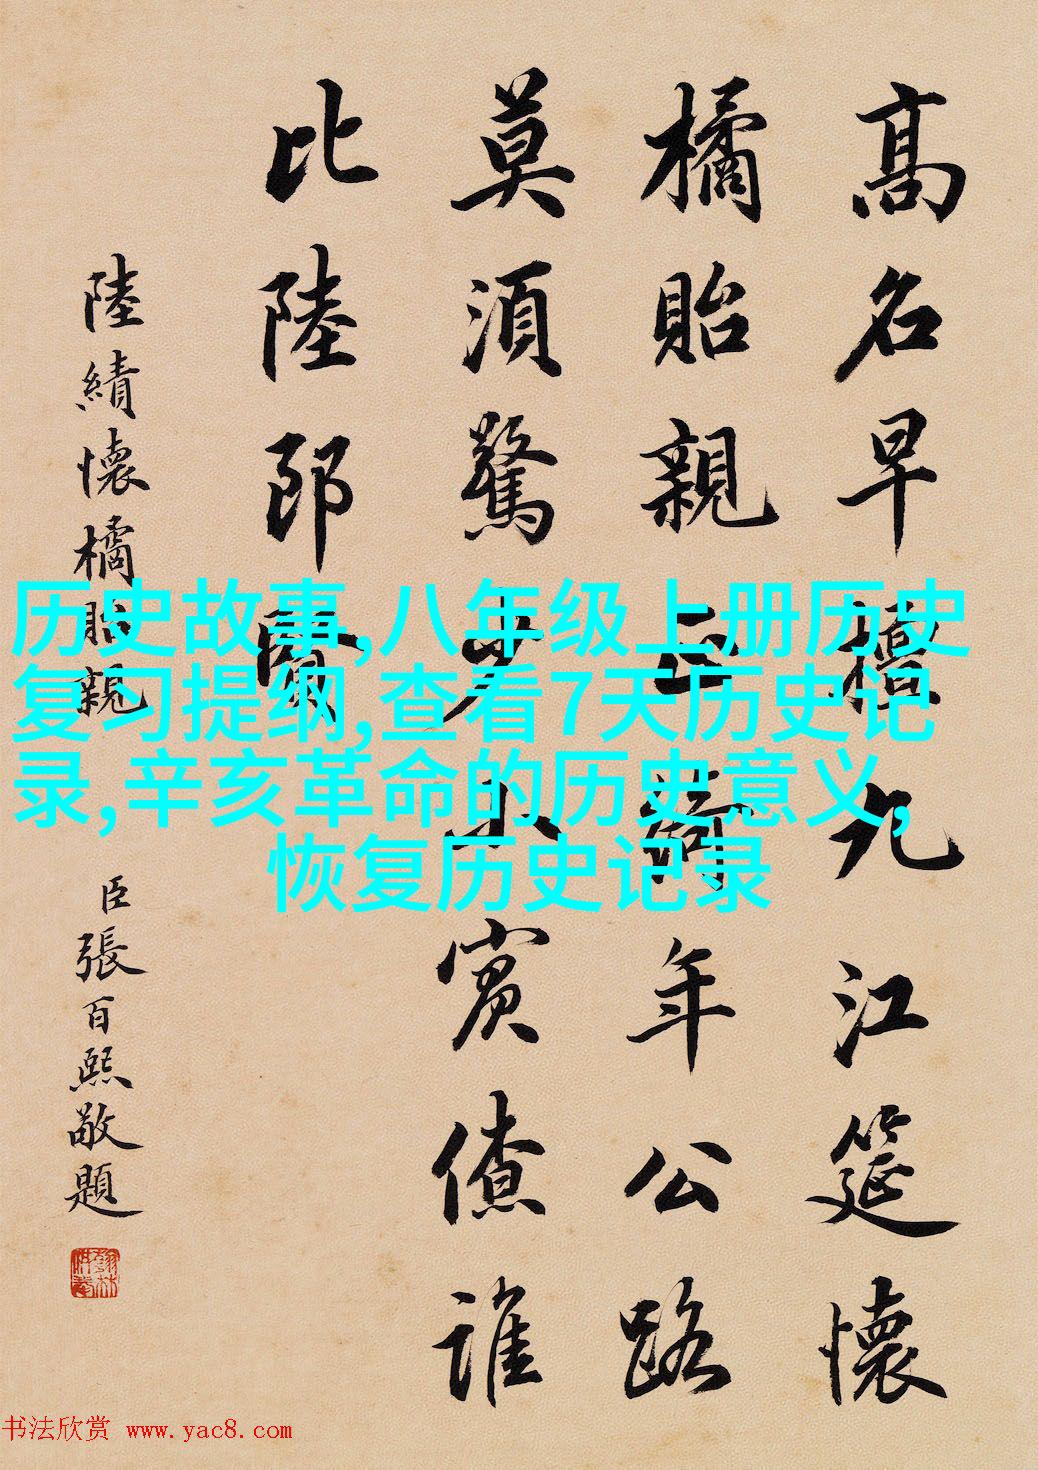 高名早擅九江筵懷
橘貽親正綺年公路
莫須驚小賓僚誰
比陸郎賢
陸績懷橘貽親
臣張百熙敬題
历史故事,八年级上册历史
复习提纲,查看7天历史记
录,辛亥革命的历史意义,
恢复历史记录
书法欣赏 www.yac8.com